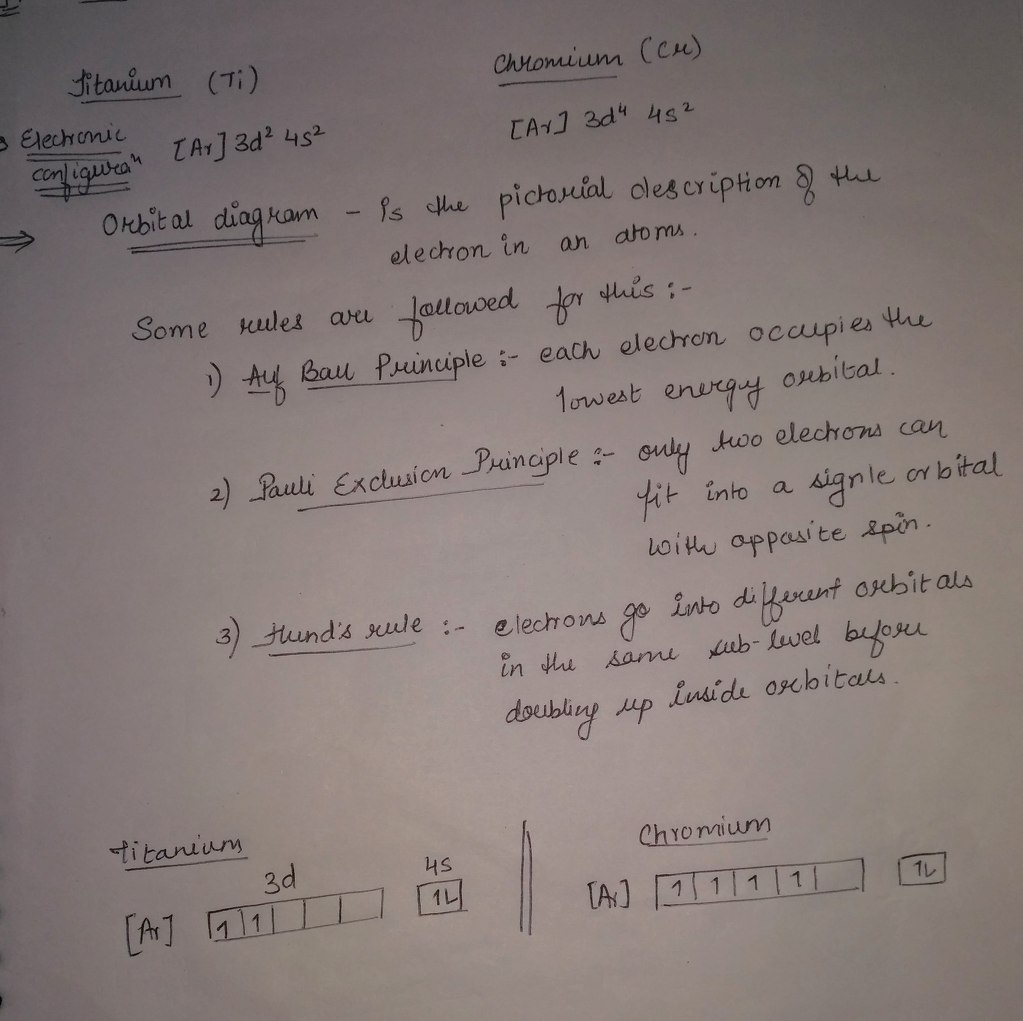 Titanium (Ti)
Chromium (Cr)
Electronic
configuraⁿ
[Ar] 3d² 4s²
[Ar] 3d⁴ 4s²
⇒ Orbital diagram - is the pictorial description of the
electron in an atoms.
Some rules are followed for this :-
1) Auf Bau Principle :- each electron occupies the
lowest energy orbital.
2) Pauli Exclusion Principle :- only two electrons can
fit into a signle orbital
with opposite spin.
3) Hund's rule :- electrons go into different orbitals
in the same sub-level before
doubling up inside orbitals.
Titanium
3d 4s
[Ar] 1 1 1L
Chromium
[Ar] 1 1 1 1 1L